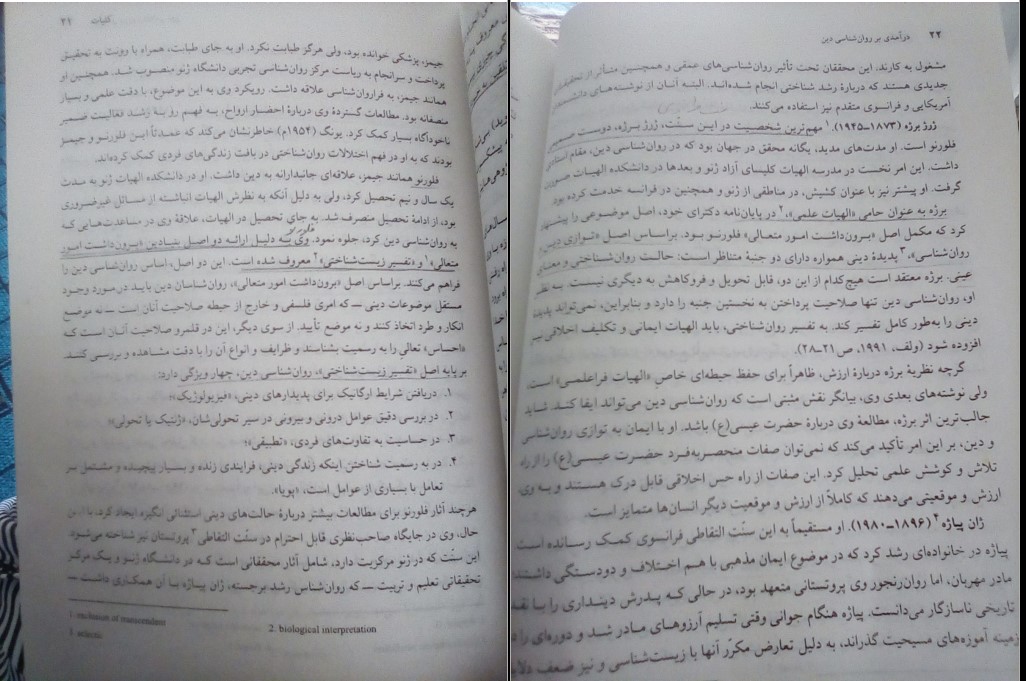 کلیات ۲۱
جیمز، پزشکی خوانده بود، ولی هرگز طبابت نکرد. او به جای طبابت، همراه با وونت به تحقیق
پرداخت و سرانجام به ریاست مرکز روان‌شناسی تجربی دانشگاه ژنو منصوب شد. همچنین او
همانند جیمز، به فراروان‌شناسی علاقه داشت. رویکرد وی به این موضوع، با دقت علمی و بسیار
منصفانه بود. مطالعات گستردهٔ وی دربارهٔ احضار ارواح، به فهم رو به رشد فعالیت ضمیر
ناخودآگاه بسیار کمک کرد. یونگ (۱۹۵۴م) خاطرنشان می‌کند که عمدتاً این فلورنو و جیمز
بودند که به او در فهم اختلالات روان‌شناختی در بافت زندگی‌های فردی کمک کرده‌اند.
فلورنو همانند جیمز، علاقه‌ای جانبدارانه به دین داشت. او در دانشکده الهیات ژنو به مدت
یک سال و نیم تحصیل کرد، ولی به دلیل آنکه به نظرش الهیات انباشته از مسائل غیرضروری
بود، از ادامهٔ تحصیل منصرف شد. به جای تحصیل در الهیات، علاقهٔ وی در مساعدت‌هایی که
به روان‌شناسی دین کرد، جلوه نمود. وی به دلیل ارائه دو اصل بنیادین «برون‌داشت امور
فلورنو
متعالی»۱ و «تفسیر زیست‌شناختی»۲ معروف شده است. این دو اصل، اساس روان‌شناسی دین را
فراهم می‌کنند. براساس اصل «برون‌داشت امور متعالی»، روان‌شناسان دین باید در مورد وجود
مستقل موضوعات دینی — که امری فلسفی و خارج از حیطه صلاحیت آنان است — نه موضع
انکار و طرد اتخاذ کنند و نه موضع تأیید. از سوی دیگر، این در قلمرو صلاحیت آنان است که
«احساس» تعالی را به رسمیت بشناسند و ظرایف و انواع آن را با دقت مشاهده و بررسی کنند.
بر پایه اصل «تفسیر زیست‌شناختی»، روان‌شناسی دین، چهار ویژگی دارد:
۱. دریافتن شرایط ارگانیک برای پدیدارهای دینی، «فیزیولوژیک»؛
۲. در بررسی دقیق عوامل درونی و بیرونی در سیر تحولی‌شان، «ژنتیک یا تحولی»؛
۳. در حساسیت به تفاوت‌های فردی، «تطبیقی»؛
۴. در به رسمیت شناختن اینکه زندگی دینی، فرایندی زنده و بسیار پیچیده و مشتمل بر
تعامل با بسیاری از عوامل است، «پویا».
هرچند آثار فلورنو برای مطالعات بیشتر دربارهٔ حالت‌های دینی استثنائی انگیزه ایجاد کرد، با این
حال، وی در جایگاه صاحب‌نظری قابل احترام در سنّت التقاطی۳ پروتستان نیز شناخته می‌شود.
این سنّت که در ژنو مرکزیت دارد، شامل آثار محققانی است که در دانشگاه ژنو و یک مرکز
تحقیقاتی تعلیم و تربیت — که روان‌شناس رشد برجسته، ژان پیاژه با آن همکاری داشت —
1. exclusion of transcendent
2. biological interpretation
3. eclectic
۲۲ درآمدی بر روان‌شناسی دین
مشغول به کارند. این محققان تحت تأثیر روان‌شناسی‌های عمقی و همچنین متأثر از تحقیقات
جدیدی هستند که دربارهٔ رشد شناختی انجام شده‌اند. البته آنان از نوشته‌های دانشمندان
آمریکایی و فرانسوی متقدم نیز استفاده می‌کنند.
ژرژ برژه (۱۸۷۳–۱۹۴۵).۱ مهم‌ترین شخصیت در این سنّت، ژرژ برژه، دوست صمیمی
فلورنو است. او مدت‌های مدید، یگانه محقق در جهان بود که در روان‌شناسی دین، مقام استادی
داشت. این امر نخست در مدرسه الهیات کلیسای آزاد ژنو و بعدها در دانشکده الهیات صورت
گرفت. او پیشتر نیز با عنوان کشیش، در مناطقی از ژنو و همچنین در فرانسه خدمت کرده بود.
برژه به عنوان حامی «الهیات علمی»،۲ در پایان‌نامه دکترای خود، اصل موضوعی را پیشنهاد
کرد که مکمل اصل «برون‌داشت امور متعالی» فلورنو بود. براساس اصل «توازی دین و
روان‌شناسی»،۳ پدیدهٔ دینی همواره دارای دو جنبهٔ متناظر است: حالت روان‌شناختی و معنای
عینی. برژه معتقد است هیچ‌کدام از این دو، قابل تحویل و فروکاهش به دیگری نیست. به نظر
او، روان‌شناسی دین تنها صلاحیت پرداختن به نخستین جنبه را دارد و بنابراین، نمی‌تواند پدیدهٔ
دینی را به‌طور کامل تفسیر کند. به تفسیر روان‌شناختی، باید الهیات ایمانی و تکلیف اخلاقی نیز
افزوده شود (ولف، ۱۹۹۱، ص۲۱–۲۸).
گرچه نظریهٔ برژه دربارهٔ ارزش، ظاهراً برای حفظ حیطه‌ای خاصِ «الهیات فراعلمی» است،
ولی نوشته‌های بعدی وی، بیانگر نقش مثبتی است که روان‌شناسی دین می‌تواند ایفا کند. شاید
جالب‌ترین اثر برژه، مطالعهٔ وی دربارهٔ حضرت عیسی(ع) باشد. او با ایمان به توازی روان‌شناسی
و دین، بر این امر تأکید می‌کند که نمی‌توان صفات منحصربه‌فرد حضرت عیسی(ع) را از راه
تلاش و کوشش علمی تحلیل کرد. این صفات از راه حس اخلاقی قابل درک هستند و به وی،
ارزش و موقعیتی می‌دهند که کاملاً از ارزش و موقعیت دیگر انسان‌ها متمایز است.
ژان پیاژه۴ (۱۸۹۶–۱۹۸۰). او مستقیماً به این سنّت التقاطی فرانسوی کمک رسانده است.
پیاژه در خانواده‌ای رشد کرد که در موضوع ایمان مذهبی با هم اختلاف و دودستگی داشتند.
مادر مهربان، اما روان‌رنجور وی پروتستانی متعهد بود، در حالی که پدرش دینداری را با نقد
تاریخی ناسازگار می‌دانست. پیاژه هنگام جوانی وقتی تسلیم آرزوهای مادر شد و دوره‌ای را در
زمینه آموزه‌های مسیحیت گذراند، به دلیل تعارض مکرّر آنها با زیست‌شناسی و نیز ضعف